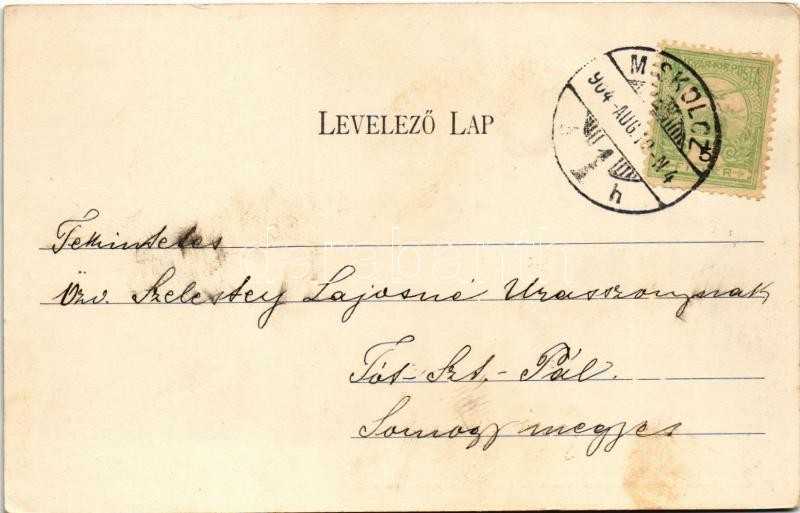 LEVELEZŐ LAP
MAGYAR KIR. POSTA
MISKOLCZ
904 AUG. N4
1
h
5
FILLÉR
Tekintetes
Özv. Szelestey Lajosné Uraszonynak
Tót-Szt.-Pál.
Somogy megye
darabanth